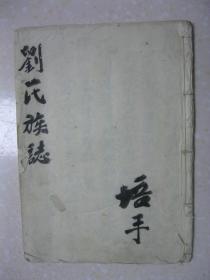 劉氏族誌
培手